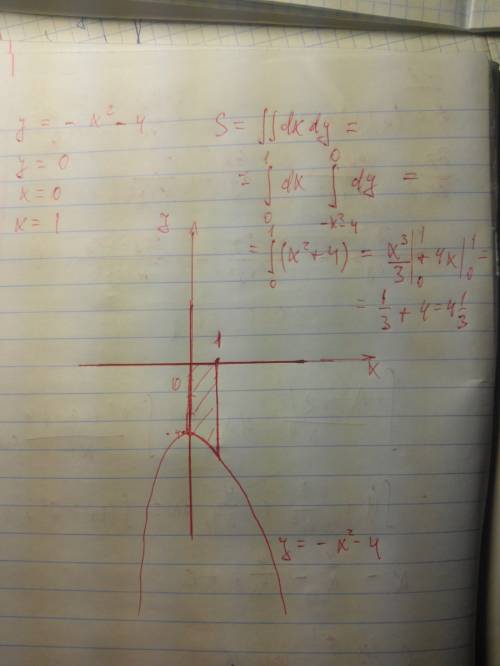 y = - x² - 4
y = 0
x = 0
x = 1
S = ∬ dx dy =
= ∫₀¹ dx ∫₋ₓ²₋₄⁰ dy =
= ∫₀¹ (x² + 4) = x³/3 |₀¹ + 4x |₀¹ =
= 1/3 + 4 = 4 1/3
y
1
0
x
-4
y = - x² - 4